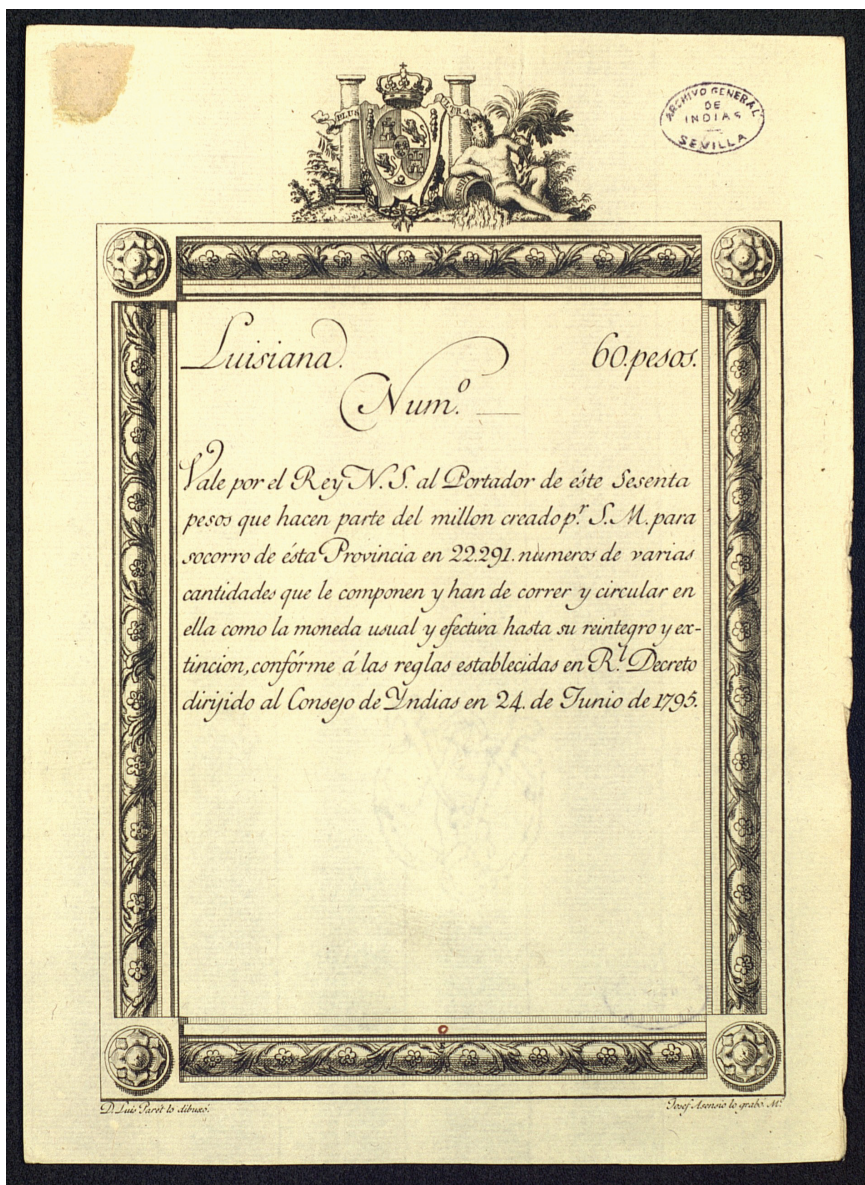 PLUS ULTRA
ARCHIVO GENERAL
DE
INDIAS
SEVILLA
Luisiana. 60. pesos.
Num.º
Vale por el Rey N. S. al Portador de éste Sesenta
pesos que hacen parte del millon creado p.r S. M. para
socorro de ésta Provincia en 22.291. numeros de varias
cantidades que le componen y han de correr y circular en
ella como la moneda usual y efectiva hasta su reintegro y ex-
tincion, confórme á las reglas establecidas en R.l Decreto
dirijido al Consejo de Yndias en 24. de Junio de 1795.
D. Luis Paret lo dibuxó.
Josef Asensio lo grabó. M.d